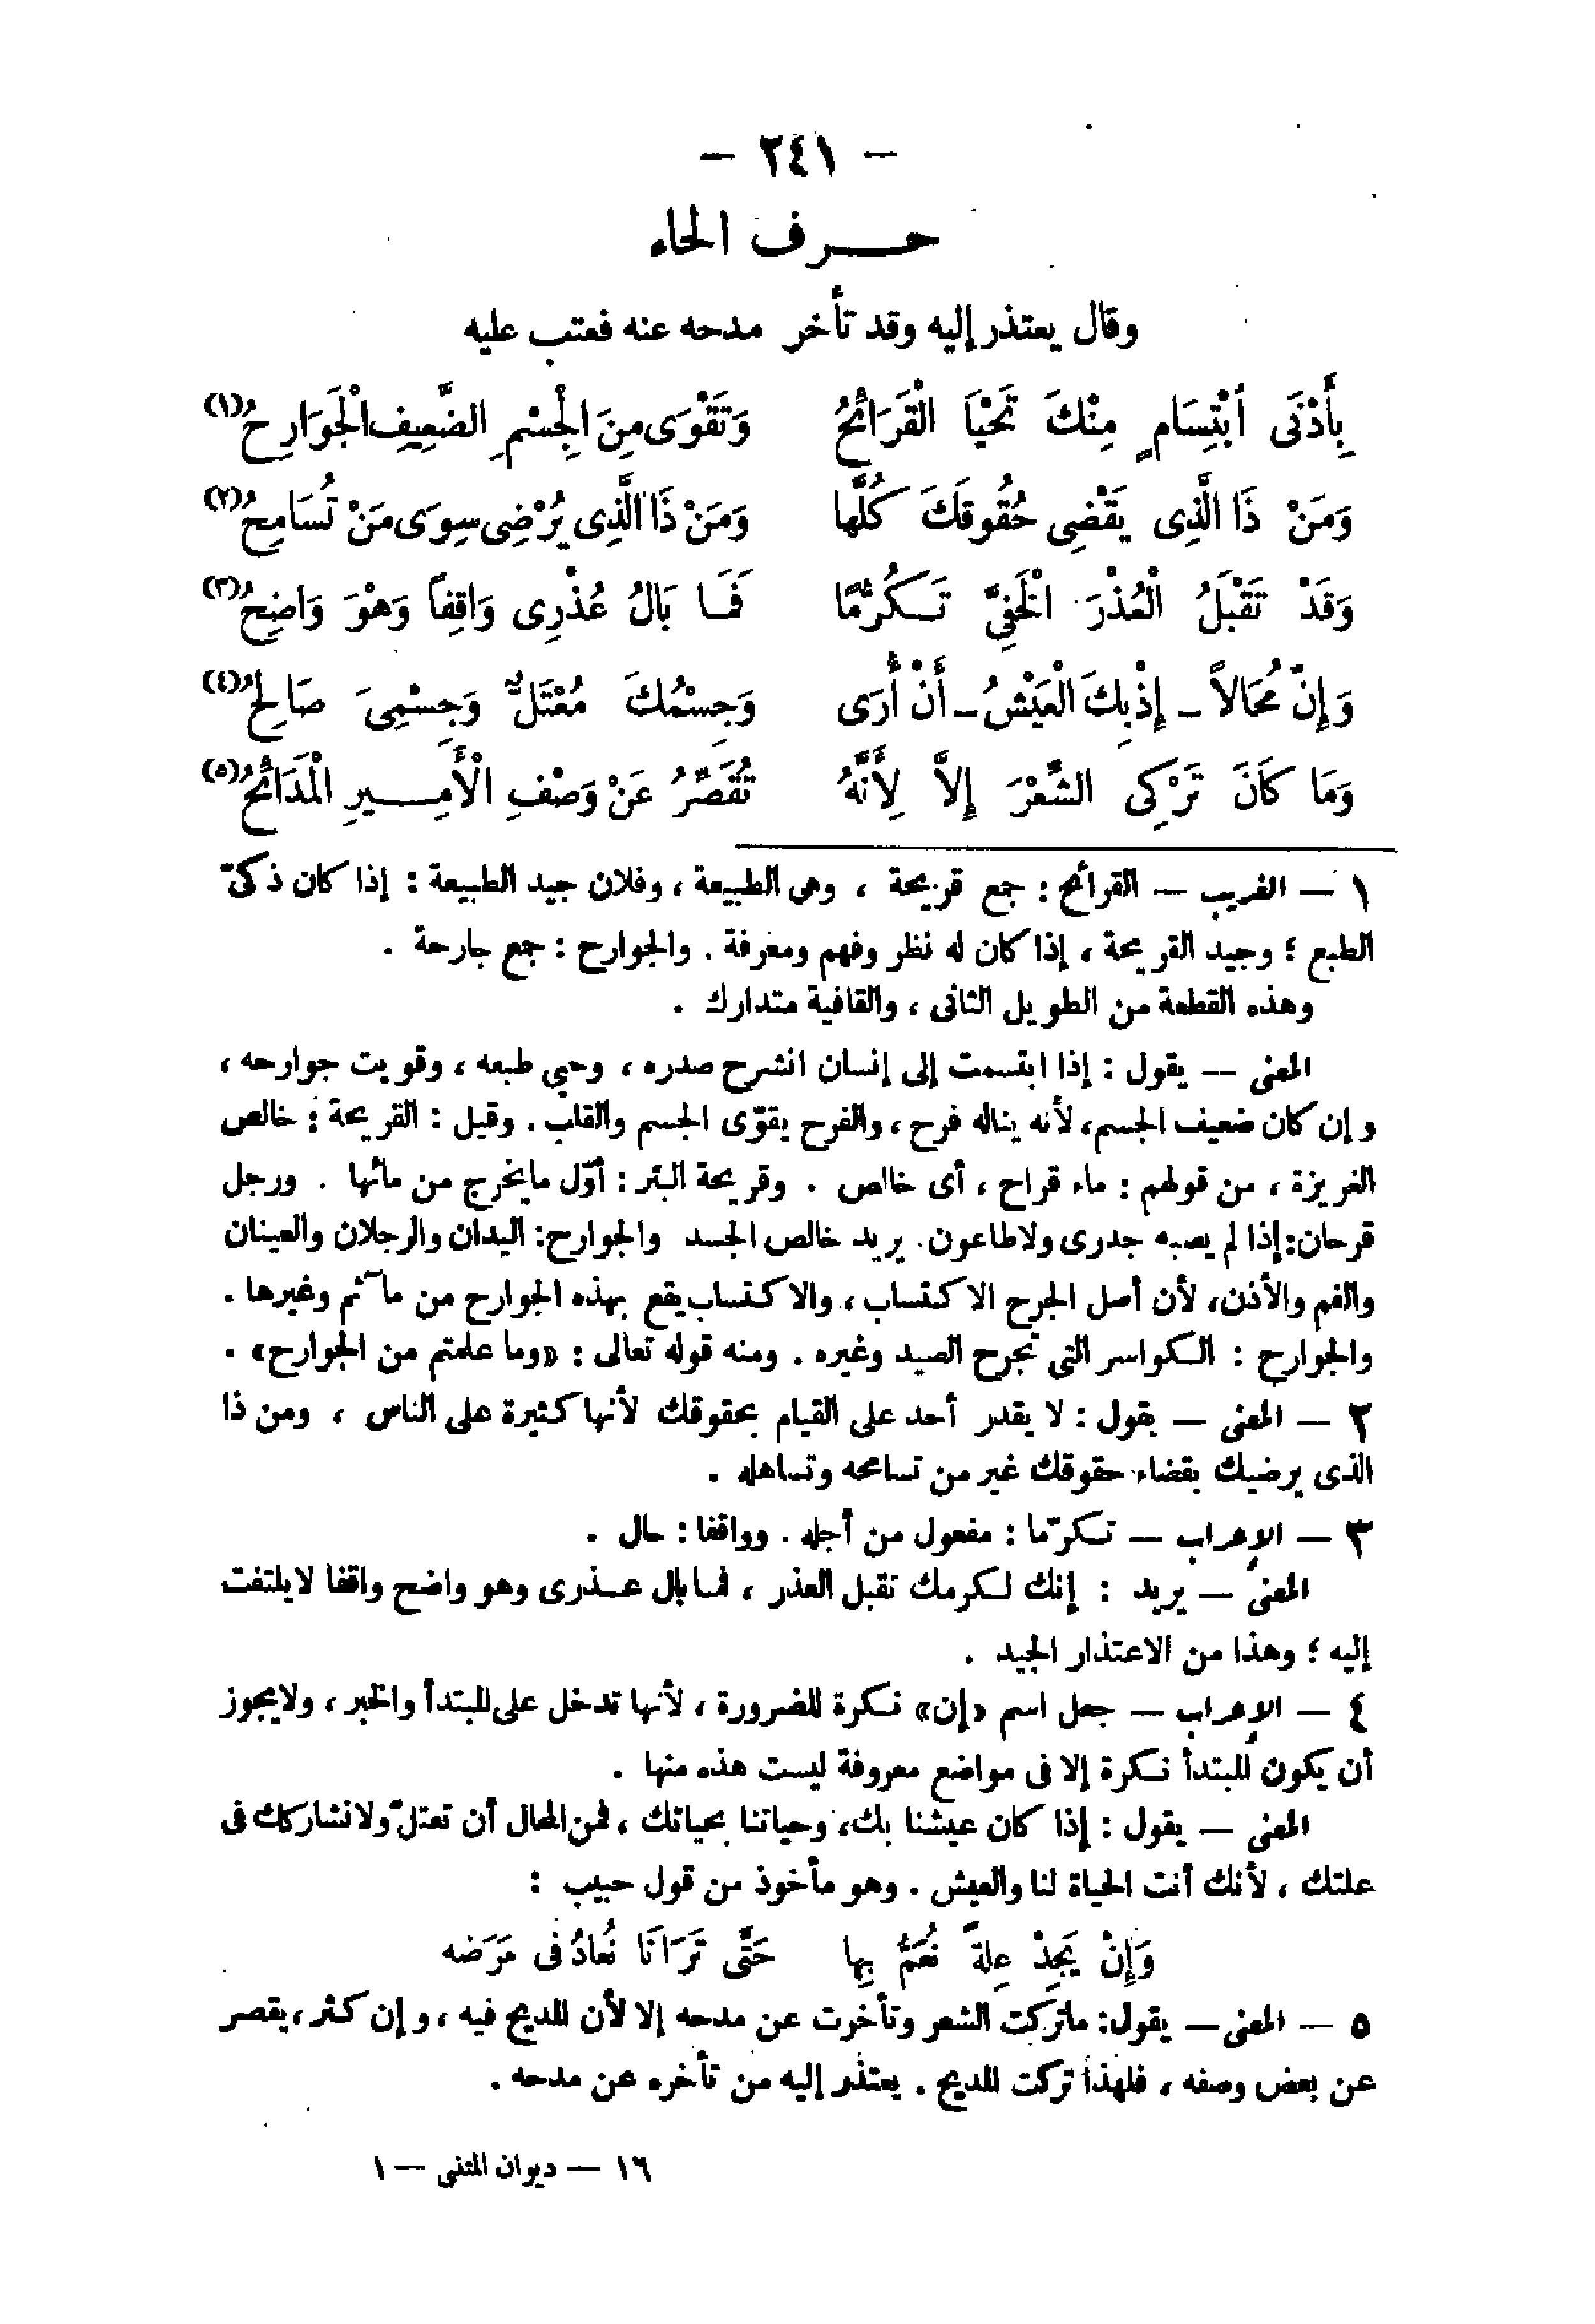 — ٢٤١ —
حرف الحاء
وقال يعتذر إليه وقد تأخر مدحه عنه فعتب عليه
بِأَدْنَى ٱبْتِسَامٍ مِنْكَ تَحْيَا الْقَرَائِحُ وَتَقْوَى مِنَ الْجِسْمِ الضَّعِيفِ الْجَوَارِحُ (١)
وَمَنْ ذَا الَّذِى يَقْضِى حُقُوقَكَ كُلَّها وَمَنْ ذَا الَّذِى يُرْضِى سِوَى مَنْ تُسَامِحُ (٢)
وَقَدْ تَقْبَلُ الْعُذْرَ الْخَفِيَّ تَكَرُّمًا فَمَا بَالُ عُذْرِى وَاقِفاً وَهْوَ وَاضِحُ (٣)
وَإِنّ مُحَالاً – إِذْ بِكَ الْعَيْشُ – أَنْ أُرَى وَجِسْمُكَ مُعْتَلٌّ وَجِسْمِىَ صَالِحُ (٤)
وَمَا كَانَ تَرْكِى الشِّعْرَ إِلاَّ لِأَنَّهُ تُقَصِّرُ عَنْ وَصْفِ الْأَمِيرِ الْمَدَائِحُ (٥)
١ — الغريب — القرائح : جمع قريحة ، وهى الطبيعة ، وفلان جيد الطبيعة : إذا كان ذكىّ
الطبع ؛ وجيد القريحة ، إذا كان له نظر وفهم ومعرفة . والجوارح : جمع جارحة .
وهذه القطعة من الطويل الثانى ، والقافية متدارك .
المعنى — يقول : إذا ابتسمت إلى إنسان انشرح صدره ، وحيي طبعه ، وقويت جوارحه ،
وإن كان ضعيف الجسم، لأنه يناله فرح ، والفرح يقوّى الجسم والقلب . وقيل : القريحة : خالص
الغريزة ، من قولهم : ماء قراح ، أى خالص . وقريحة البئر : أوّل مايخرج من مائها . ورجل
قرحان: إذا لم يصبه جدرى ولاطاعون. يريد خالص الجسد والجوارح: اليدان والرجلان والعينان
والفم والأذن، لأن أصل الجرح الاكتساب ، والاكتساب يقع بهذه الجوارح من مآثم وغيرها .
والجوارح : الكواسر التى تجرح الصيد وغيره . ومنه قوله تعالى : «وما علمتم من الجوارح» .
٢ — المعنى — يقول : لا يقدر أحد على القيام بحقوقك لأنها كثيرة على الناس ، ومن ذا
الذى يرضيك بقضاء حقوقك غير من تسامحه وتساهله .
٣ — الإعراب — تكرّما : مفعول من أجله . وواقفا : حال .
المعنى — يريد : إنك لكرمك تقبل العذر ، فما بال عذرى وهو واضح واقفا لايلتفت
إليه ؛ وهذا من الاعتذار الجيد .
٤ — الإعراب — جعل اسم «إن» نكرة للضرورة ، لأنها تدخل على المبتدأ والخبر ، ولايجوز
أن يكون المبتدأ نكرة إلا فى مواضع معروفة ليست هذه منها .
المعنى — يقول : إذا كان عيشنا بك، وحياتنا بحياتك ، فمن المحال أن تعتلّ ولانشاركك فى
علتك ، لأنك أنت الحياة لنا والعيش . وهو مأخوذ من قول حبيب :
وَإِنْ يَجِدْ عِلةً نُعَمُّ بِها حَتَّى تَرَانَا نُعادُ فى مَرَضه
٥ — المعنى — يقول: ماتركت الشعر وتأخرت عن مدحه إلا لأن المديح فيه ، وإن كثر ، يقصر
عن بعض وصفه ، فلهذا تركت المديح . يعتذر إليه من تأخره عن مدحه .
١٦ — ديوان المتنبى — ١